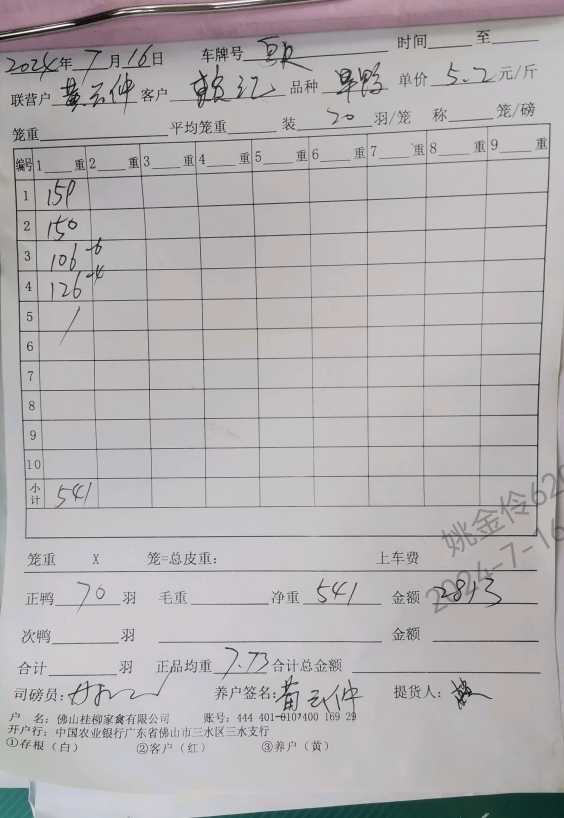 2024年7月16日 车牌号 时间 至
联营户 黄云仲 客户 品种 旱鸭 单价 5.2 元/斤
笼重 平均笼重 装 20 羽/笼 称 笼/磅
编号 1 重 2 重 3 重 4 重 5 重 6 重 7 重 8 重 9 重
1 159
2 150
3 106 -6
4 126 -4
5
6
7
8
9
10
小计 541
笼重 X 笼=总皮重: 上车费
正鸭 70 羽 毛重 净重 541 金额 2813
次鸭 羽 金额
合计 羽 正品均重 7.73 合计总金额
司磅员: 养户签名: 黄云仲 提货人:
户 名: 佛山桂柳家禽有限公司 账号: 444 401-0107400 169 29
开户行: 中国农业银行广东省佛山市三水区三水支行
①存根(白) ②客户(红) ③养户(黄)
姚金伶620
2024-7-16